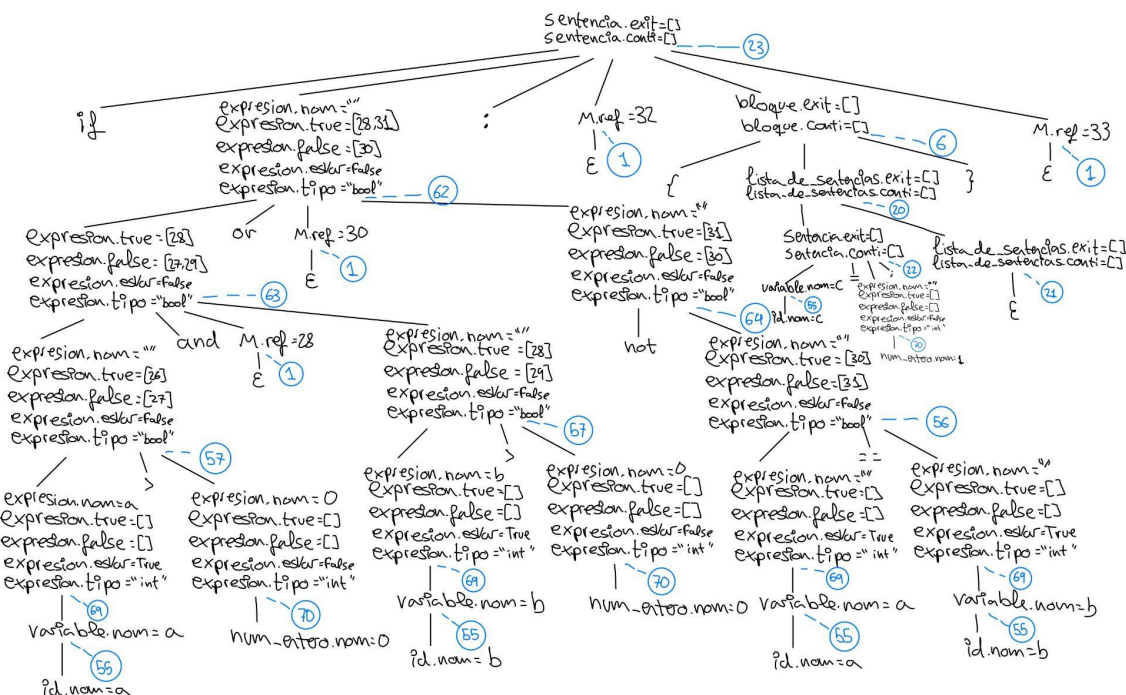 sentencia.exit=[]
sentencia.conti=[]
23
if
expresion.nom=""
expresion.true=[28,31]
expresion.false=[30]
expresion.esVar=False
expresion.tipo="bool"
62
:
M.ref=32
ε
1
bloque.exit=[]
bloque.conti=[]
6
M.ref=33
ε
1
expresion.true=[28]
expresion.false=[27,29]
expresion.esVar=False
expresion.tipo="bool"
63
or
M.ref=30
ε
1
expresion.nom=""
expresion.true=[31]
expresion.false=[30]
expresion.esVar=False
expresion.tipo="bool"
64
{
lista_de_sentencias.exit=[]
lista_de_sentencias.conti=[]
20
}
Sentencia.exit=[]
Sentencia.conti=[]
22
lista_de_sentencias.exit=[]
lista_de_sentencias.conti=[]
21
ε
variable.nom=c
55
id.nom=c
=
expresion.nom=""
expresion.true=[]
expresion.false=[]
expresion.esVar=False
expresion.tipo="int"
70
num_entero.nom=1
expresion.nom=""
expresion.true=[26]
expresion.false=[27]
expresion.esVar=False
expresion.tipo="bool"
57
and
M.ref=28
ε
1
expresion.nom=""
expresion.true=[28]
expresion.false=[29]
expresion.esVar=False
expresion.tipo="bool"
57
not
expresion.nom=""
expresion.true=[30]
expresion.false=[31]
expresion.esVar=False
expresion.tipo="bool"
56
expresion.nom=a
expresion.true=[]
expresion.false=[]
expresion.esVar=True
expresion.tipo="int"
69
variable.nom=a
55
id.nom=a
>
expresion.nom=0
expresion.true=[]
expresion.false=[]
expresion.esVar=False
expresion.tipo="int"
70
num_entero.nom=0
expresion.nom=b
expresion.true=[]
expresion.false=[]
expresion.esVar=True
expresion.tipo="int"
69
variable.nom=b
55
id.nom=b
>
expresion.nom=0
expresion.true=[]
expresion.false=[]
expresion.esVar=False
expresion.tipo="int"
70
num_entero.nom=0
expresion.nom=""
expresion.true=[]
expresion.false=[]
expresion.esVar=True
expresion.tipo="int"
69
variable.nom=a
55
id.nom=a
==
expresion.nom=""
expresion.true=[]
expresion.false=[]
expresion.esVar=True
expresion.tipo="int"
69
variable.nom=b
55
id.nom=b